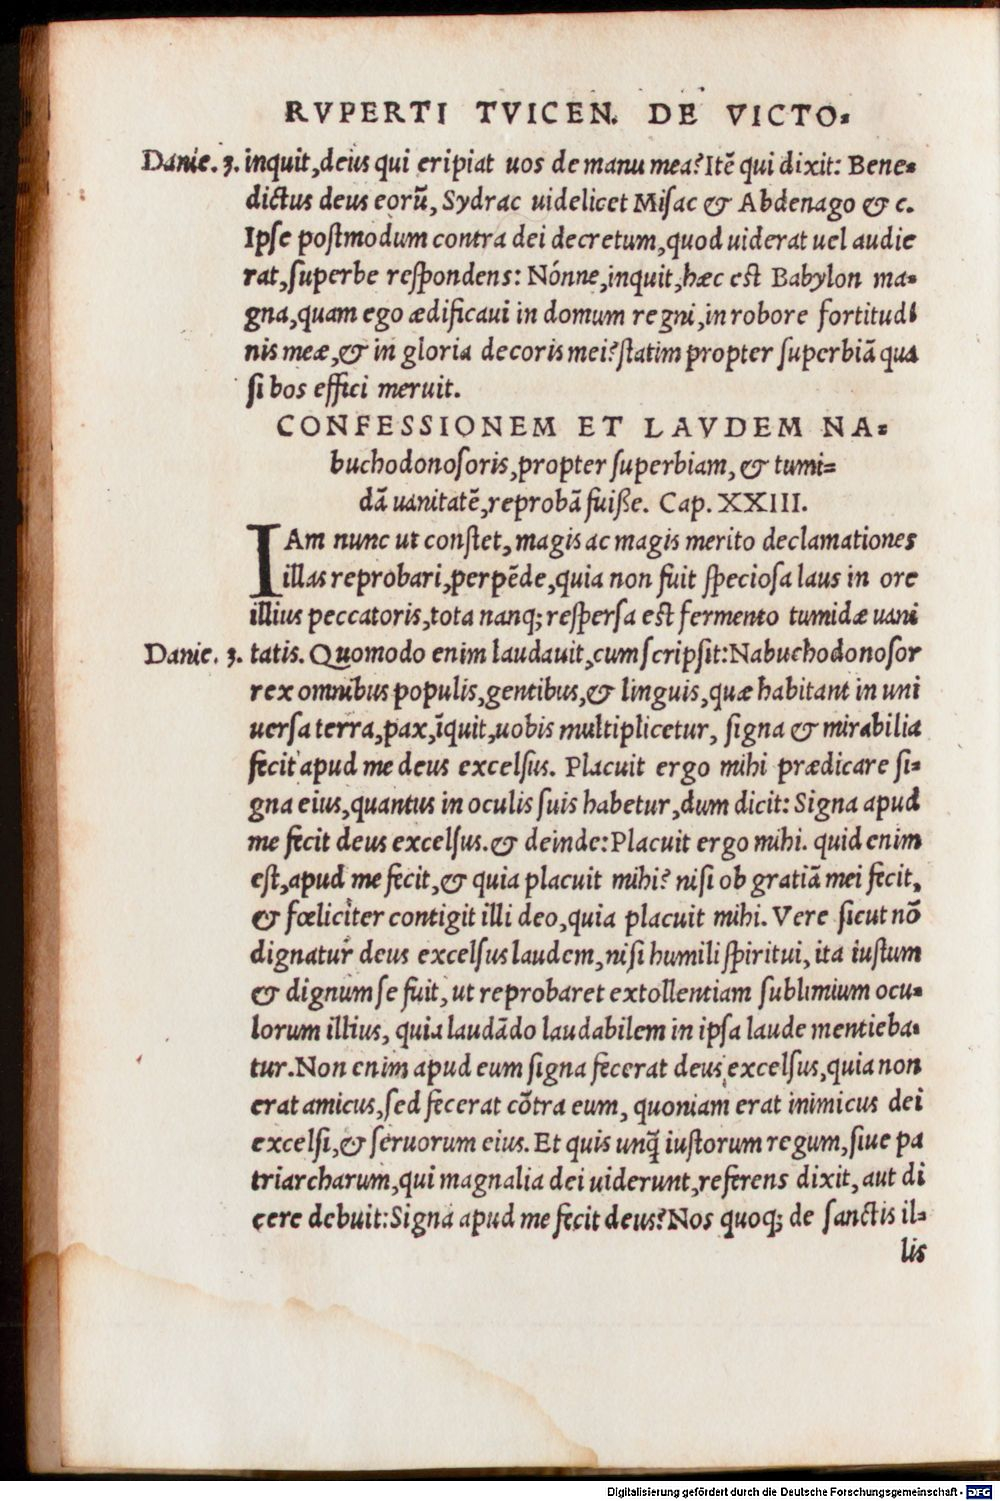 RVPERTI TVICEN. DE VICTO-
Danie. 3. inquit, deus qui eripiat uos de manu mea? Itē qui dixit: Bene-
dictus deus eorū, Sydrac uidelicet Misac & Abdenago & c.
Ipse postmodum contra dei decretum, quod uiderat uel audie
rat, superbe respondens: Nónne, inquit, hæc est Babylon ma-
gna, quam ego ædificaui in domum regni, in robore fortitudi
nis meæ, & in gloria decoris mei? statim propter superbiā qua
si bos effici meruit.
CONFESSIONEM ET LAVDEM NA-
buchodonosoris, propter superbiam, & tumi-
dā uanitatē, reprobā fuisse. Cap. XXIII.
IAm nunc ut constet, magis ac magis merito declamationes
illas reprobari, perpēde, quia non fuit speciosa laus in ore
illius peccatoris, tota nanq; respersa est fermento tumidæ uani
Danie. 3. tatis. Quomodo enim laudauit, cum scripsit: Nabuchodonosor
rex omnibus populis, gentibus, & linguis, quæ habitant in uni
uersa terra, pax, īquit, uobis multiplicetur, signa & mirabilia
fecit apud me deus excelsus. Placuit ergo mihi prædicare si-
gna eius, quantus in oculis suis habetur, dum dicit: Signa apud
me fecit deus excelsus. & deinde: Placuit ergo mihi. quid enim
est, apud me fecit, & quia placuit mihi? nisi ob gratiā mei fecit,
& fœliciter contigit illi deo, quia placuit mihi. Vere sicut nō
dignatur deus excelsus laudem, nisi humili spiritui, ita iustum
& dignum se fuit, ut reprobaret extollentiam sublimium ocu-
lorum illius, quia laudādo laudabilem in ipsa laude mentieba-
tur. Non enim apud eum signa fecerat deus excelsus, quia non
erat amicus, sed fecerat cōtra eum, quoniam erat inimicus dei
excelsi, & seruorum eius. Et quis unq̄ iustorum regum, siue pa
triarcharum, qui magnalia dei uiderunt, referens dixit, aut di
cere debuit: Signa apud me fecit deus? Nos quoq; de sanctis il-
lis
Digitalisierung gefördert durch die Deutsche Forschungsgemeinschaft - DFG